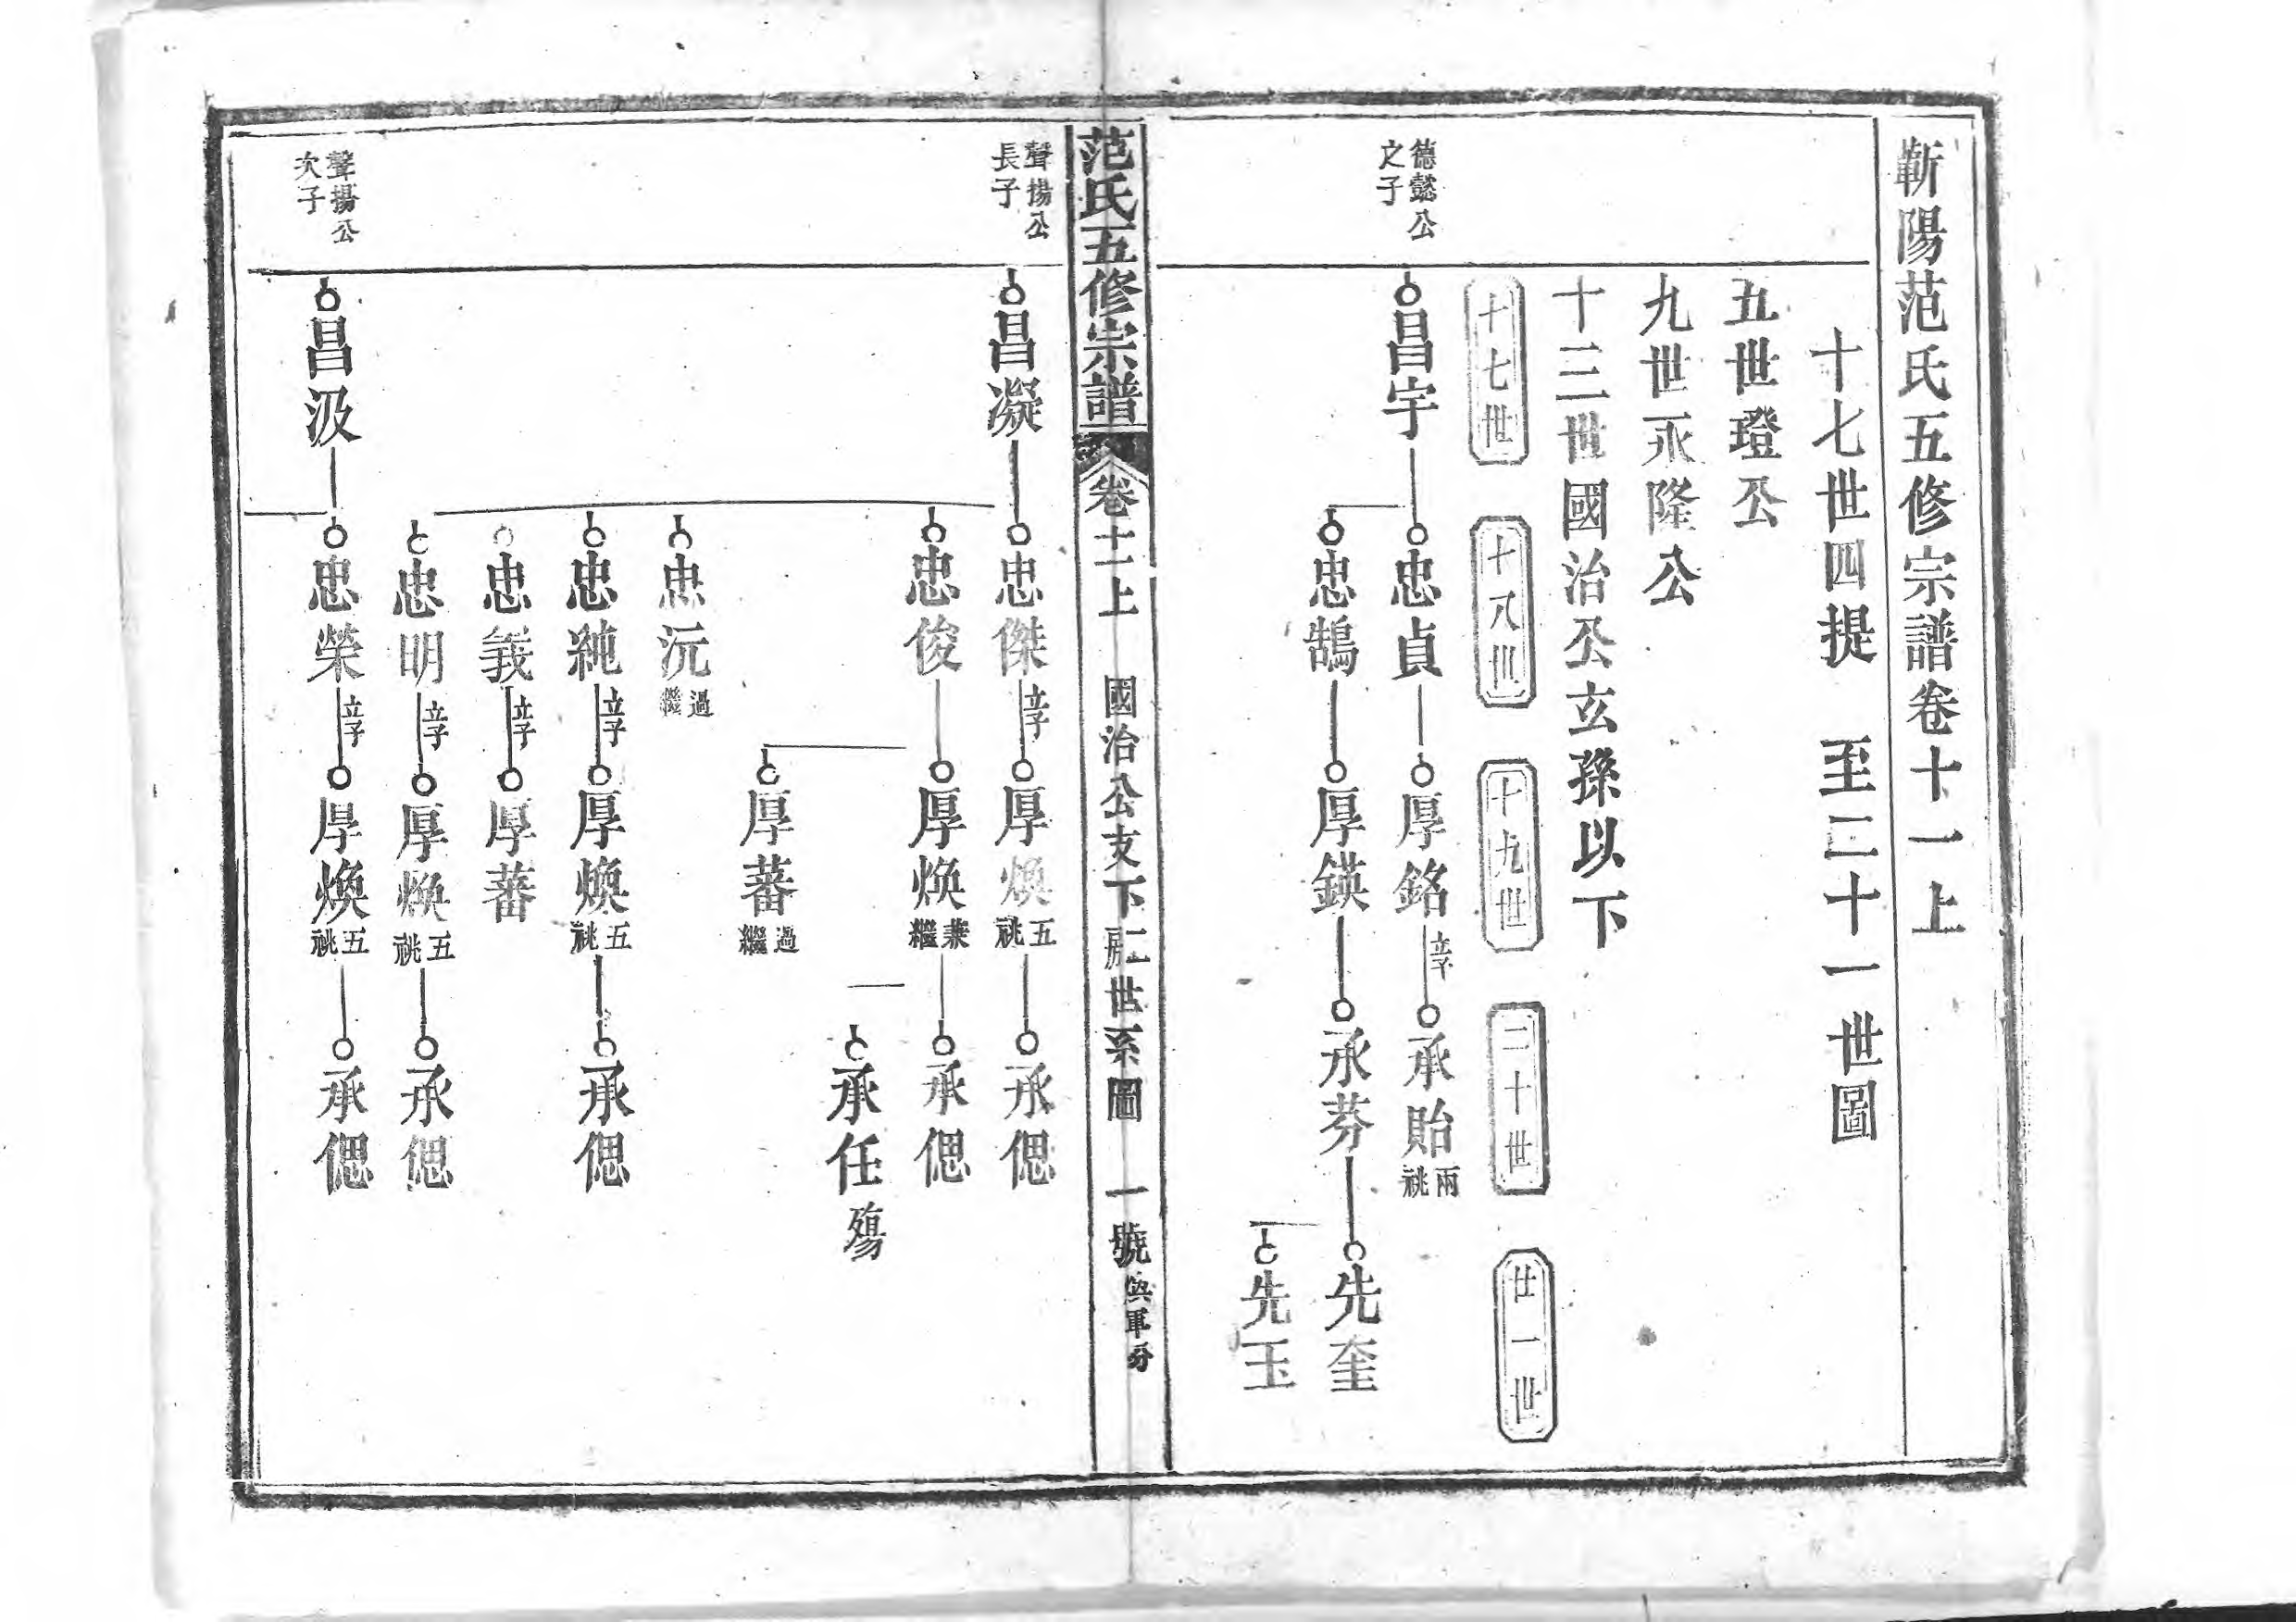 蘄陽范氏五修宗譜卷十一上
十七世四提 至二十一世圖
五世璒公
九世永隆公
十三世國治公玄孫以下
十七世
十八世
十九世
二十世
廿一世
德懿公
之子
昌宇
忠貞
厚銘
立子
承貽
兩祧
忠鵠
厚鍈
承芬
先奎
先玉
范氏五修宗譜
卷十一上
國治公支下二房世系圖
一號
聲揚公
長子
昌凝
忠傑
立子
厚煥
五祧
承偲
忠俊
厚煥
兼繼
承偲
承任
殤
厚蕃
過繼
忠沅
過繼
忠純
立子
厚煥
五祧
承偲
忠義
立子
厚蕃
忠明
立子
厚煥
五祧
承偲
聲揚公
次子
昌汲
忠榮
立子
厚煥
五祧
承偲